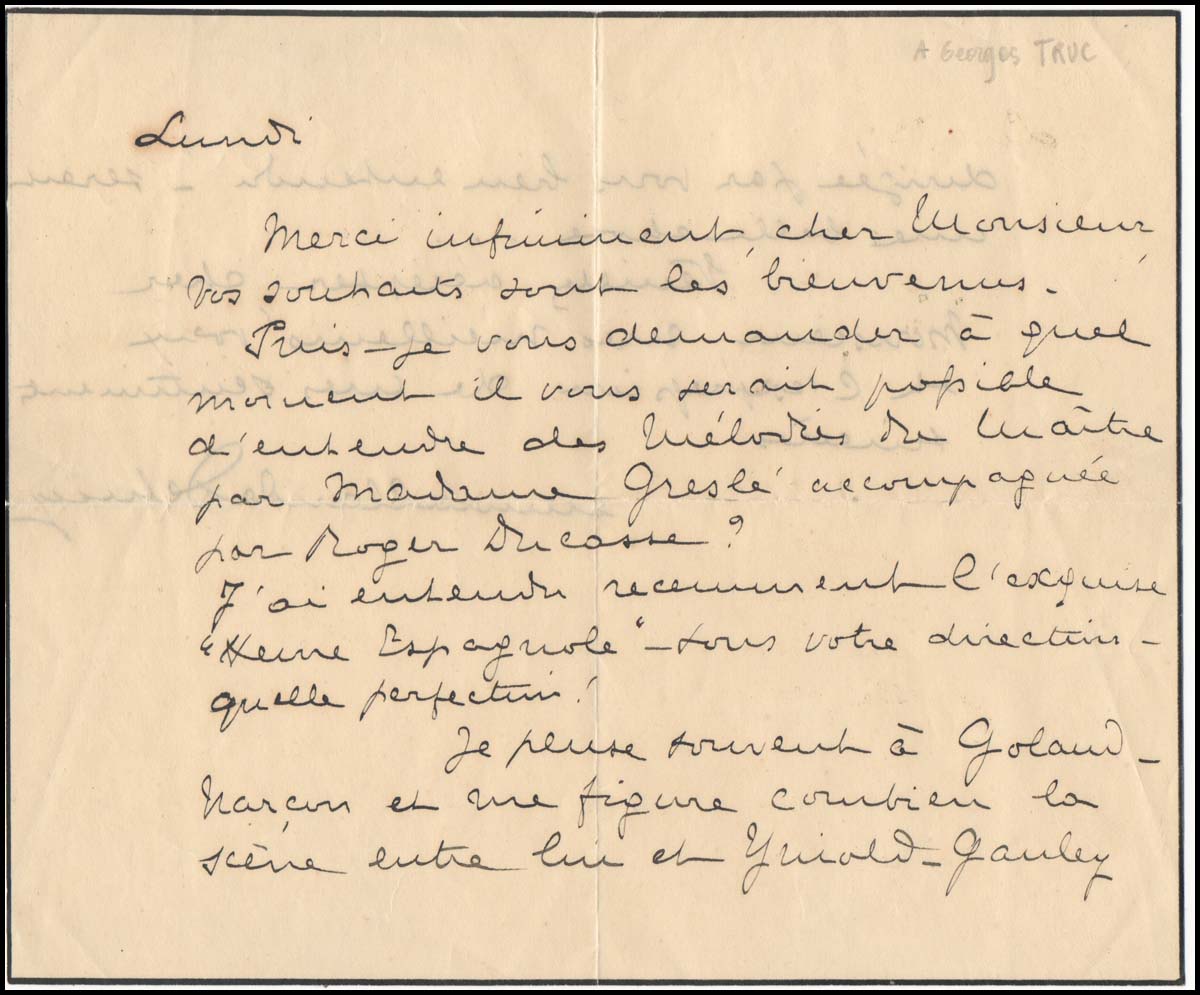 A Georges TRUC
Lundi
Merci infiniment, cher Monsieur
Vos souhaits sont les bienvenus.
Puis-je vous demander à quel
moment il vous serait possible
d'entendre des Mélodies du Maître
par Madame Greslé accompagnée
par Roger Ducasse ?
J'ai entendu recemment l'exquise
" Heure Espagnole " - sous votre direction -
quelle perfection !
Je pense souvent à Golaud -
Narçon et me figure combien la
scène entre lui et Yniold - Gauley